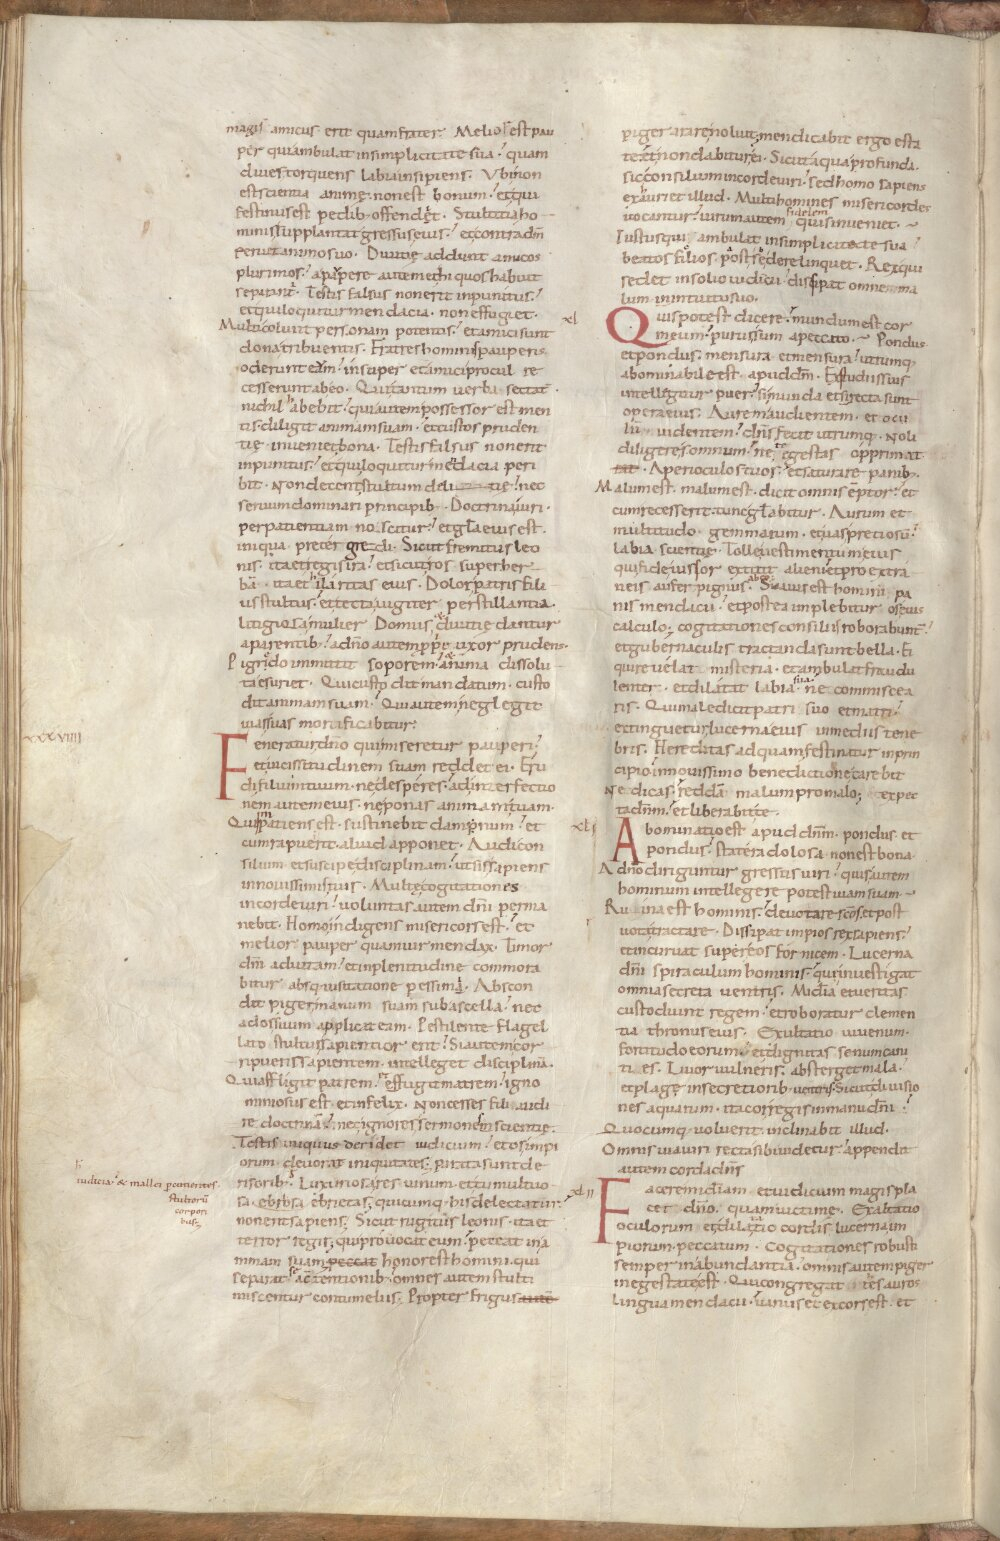 magis amicus erit quam frater. Melior est pau
per qui ambulat in simplicitate sua. quam
diues torquens labia insipiens. Ubi non
est scientia animę. non est bonum. et qui
festinus est pedib. offendet. Stultitia ho
minis supplantat gressus eius. et contra dm̄
feruet animo suo. Diuitię addunt amicos
plurimos. a paupere autem et hi quos habuit
separant̄. Testis falsus non erit inpunitus.
et qui loquitur mendacia. non effugiet.
Multi colunt personam potentis. et amici sunt
dona tribuentis. Fratres hominis pauperis
oderunt eum. insuper et amici procul re
cesserunt ab eo. Qui tantum uerba sectat̄
nichil habebit. qui autem possessor est men
tis. diligit animam suam. et custos pruden
tię inueniet bona. Testis falsus non erit
inpunitus. et qui loquitur mendacia peri
bit. Non decent stultum deli tię. nec
seruum dominari principib. Doctrina uiri.
per patientiam noscitur. et gła eius est.
iniqua pretergredi. Sicut fremitus leo
nis. ita et regis ira. et sicut ros super her
bā. ita et hilaritas eius. Dolor patris fili
us stultus. et tecta iugiter perstillantia.
litigiosa mulier. Domus et diuitię dantur
a parentib. a dn̄o autem p̄prię uxor prudens.
Pigredo inmittit soporem. et anima dissolu
ta esuriet. Qui custodit mandatum. custo
dit animam suam. Qui autem neglegit
uias suas mortificabitur.
xxxviiii
Feneratur dn̄o qui miseretur pauperi.
et uicissitudinem suam reddet ei. Eru
di filium tuum. ne desperes. ad interfectio
nem autem eius. ne ponas animam tuam.
Qui inpatiens est. sustinebit dampnum. et
cum rapuerit. aliud apponet. Audi con
silium et suscipe disciplinam. ut sis sapiens
in nouissimis tuis. Multę cogitationes
in corde uiri. uoluntas autem dn̄i perma
nebit. Homo indigens misericors est. et
melior pauper quam uir mendax. Timor
dn̄i ad uitam. et in plenitudine commora
bitur absq; uisitatione pessima. Abscon
dit piger manum suam sub ascella. nec
ad os suum applicat eam. Pestilente flagel
lato stultus sapientior erit. Si autem cor
ripueris sapientem. intelleget disciplinā.
Qui affligit patrem. et effugit matrem. igno
miniosus est et infelix. Non cesses fili audi
re doctrinā. nec ignores sermones scientię.
Testis iniquus deridet iudicium. et os impi
orum deuorat iniquitates. Parata sunt de
risorib.
iudicia. & mallei percutientes
stultorū
corpori
bus.
Luxuriosa res uinum et tumultuo
sa ebrietas. quicumq; his delectatur
non erit sapiens. Sicut rugitus leonis. ita et
terror regis. qui prouocat eum. peccat in a
nimam suam peccat honor est homini. qui
separat se a contentionib. omnes autem stulti
miscentur contumeliis. Propter frigus autē
piger arare noluit. mendicabit ergo esta
te. et non dabitur ei. Sicut aqua profunda.
sic consilium in corde uiri. sed homo sapiens
exauriet illud. Multi homines misericordes
uocantur. uirum autem fidelem quis inueniet.
Iustus qui ambulat in simplicitate sua
beatos filios post se derelinquet. Rex qui
sedet in solio iudicii. dissipat omne ma
lum in intuitu suo.
xl
Quis potest dicere. mundum est cor
meum. purus sum a peccato. Pondus
et pondus. mensura et mensura. utrumq;
abominabile est apud dm̄. Ex studiis suis
intellegitur puer. si munda et si recta sunt
opera eius. Aurem audientem. et ocu
lū uidentem. dn̄s fecit utrumq. Noli
diligere somnum. ne te egestas opprimat
tat. Aperi oculos tuos. et saturare panib.
Malum est. malum est. dicit omnis emptor. et
cum recesserit. tunc gl̄abitur. Aurum et
multitudo gemmarum. et uas preciosū.
labia scientię. Tolle uestimentum eius
qui fideiussor extitit alieni. et pro extra
neis aufer pignus ab eo. Suauis est homini pa
nis mendacii. et postea implebitur os eius
calculo. cogitationes consiliis roborabunt̄.
et gubernaculis tractanda sunt bella. Ei
qui reuelat misteria. et ambulat fraudu
lenter. et dilatat labia sua. ne commiscea
ris. Qui maledicit patri suo et matri.
extinguetur lucerna eius in mediis tene
bris. Hereditas ad quam festinatur in prin
cipio. in nouissimo benedictione carebit
Ne dicas. reddā malum pro malo; expec
ta dn̄m. et liberabit te.
xli
Abominatio est apud dn̄m. pondus et
pondus. statera dolosa non est bona.
A dn̄o diriguntur gressus uiri. quis autem
hominum intellegere potest uiam suam.
Ruina est hominis. deuotare scōs. et post
uota tractare. Dissipat impios rex sapiens.
et incuruat super eos fornicem. Lucerna
dn̄i spiraculum hominis. qui inuestigat
omnia secreta uentris. Mīdia et ueritas
custodiunt regem. et roboratur clemen
tia thronus eius. Exultatio iuuenum.
fortitudo eorum. et dignitas senum cani
ti es. Liuor uulneris. absterget mala.
et plagę in secretiorib. uentris. Sicut diuisio
nes aquarum. ita cor regis in manu dn̄i.
Quocumq; uoluerit inclinabit illud.
Omnis uia uiri recta sibi uidetur. appendit
autem corda dn̄s
xlii
Facere mīdiam et iudicium magis pla
cet dn̄o. quam uictimę. Exaltatio
oculorum et dilatatio cordis. lucerna im
piorum. peccatum. Cogitationes robusti
semper in abundantia. omnis autem piger
in egestate est. Qui congregat tesauros
lingua mendacii. uanus et excors est. et